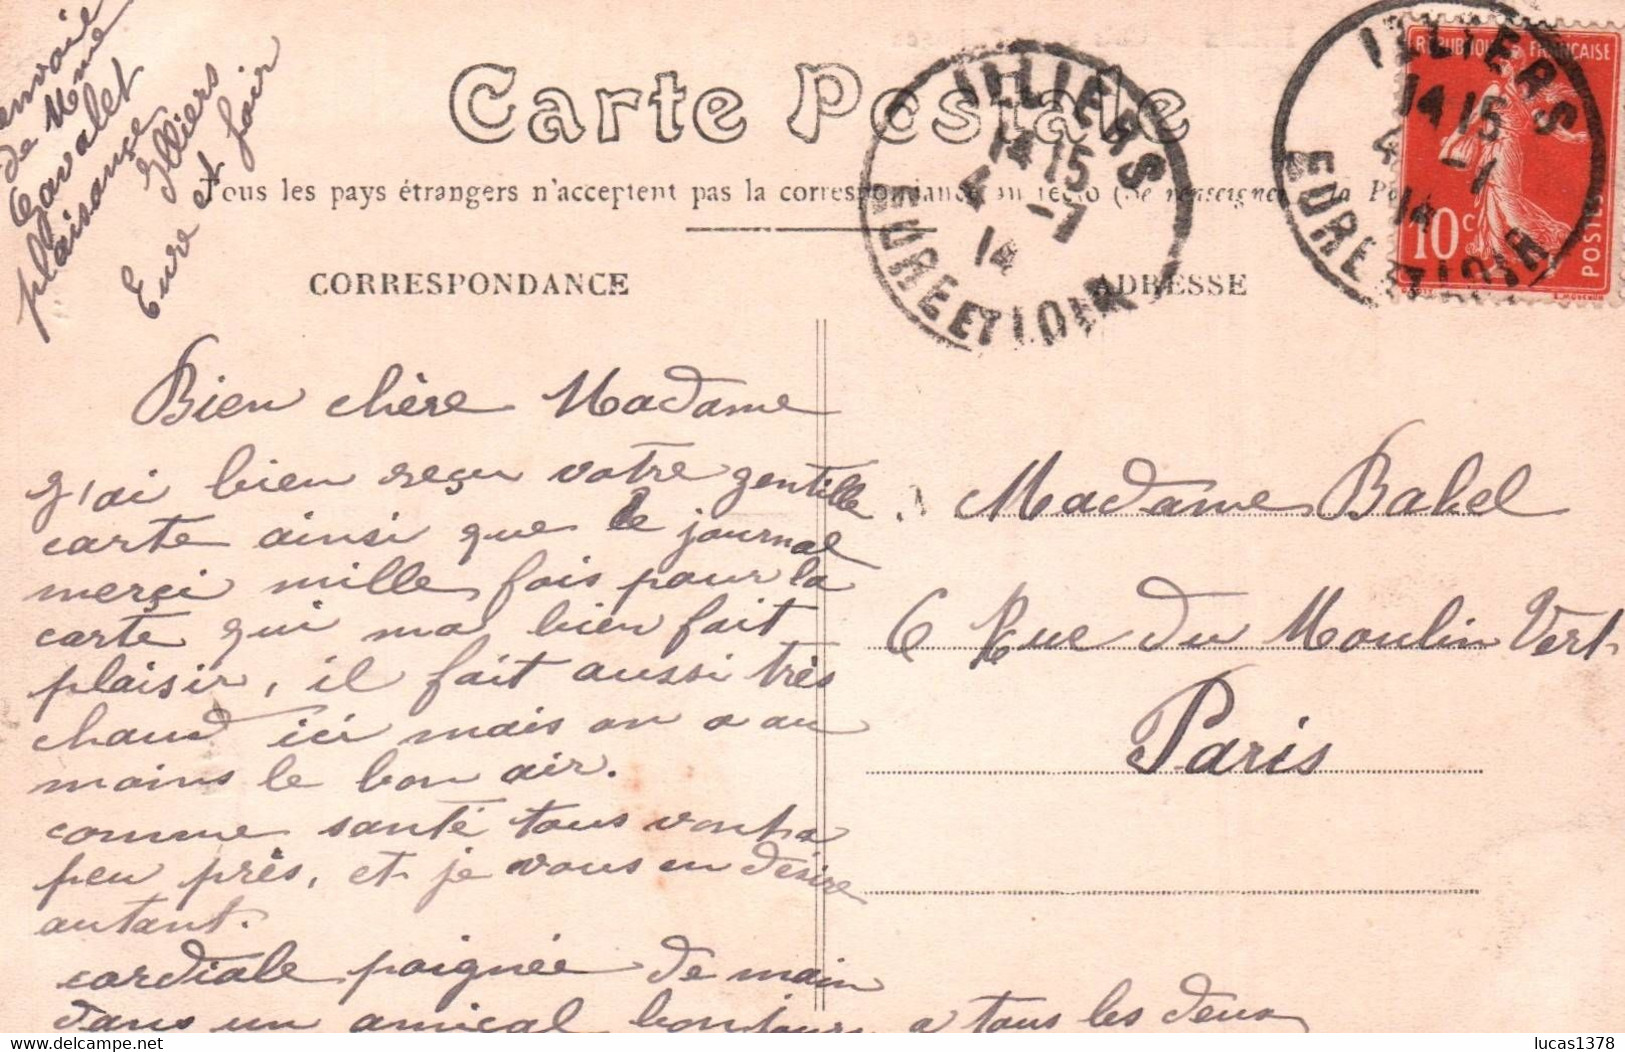 envoie
de Mme
Cavalet
plaisance
Illiers
Eure et Loir
Carte Postale
Tous les pays étrangers n'acceptent pas la correspondance au recto (Se renseigner à la Poste)
CORRESPONDANCE
ADRESSE
ILLIERS
14 15
4 -7
14
EURE ET LOIR
ILLIERS
14 15
4 -7
14
EURE ET LOIR
REPUBLIQUE FRANÇAISE
10c
POSTES
Bien chère Madame
J'ai bien reçu votre gentille
carte ainsi que le journal
merçi mille fois pour la
carte qui ma bien fait
plaisir, il fait aussi très
chaud ici mais on a au
moins le bon air.
comme santé tous vont a
peu près, et je vous en désire
autant.
cordiale poignée de main
dans un amical bonjour a tous les deux
Madame Bakel
6 Rue du Moulin Vert
Paris
www.delcampe.net
lucas1378